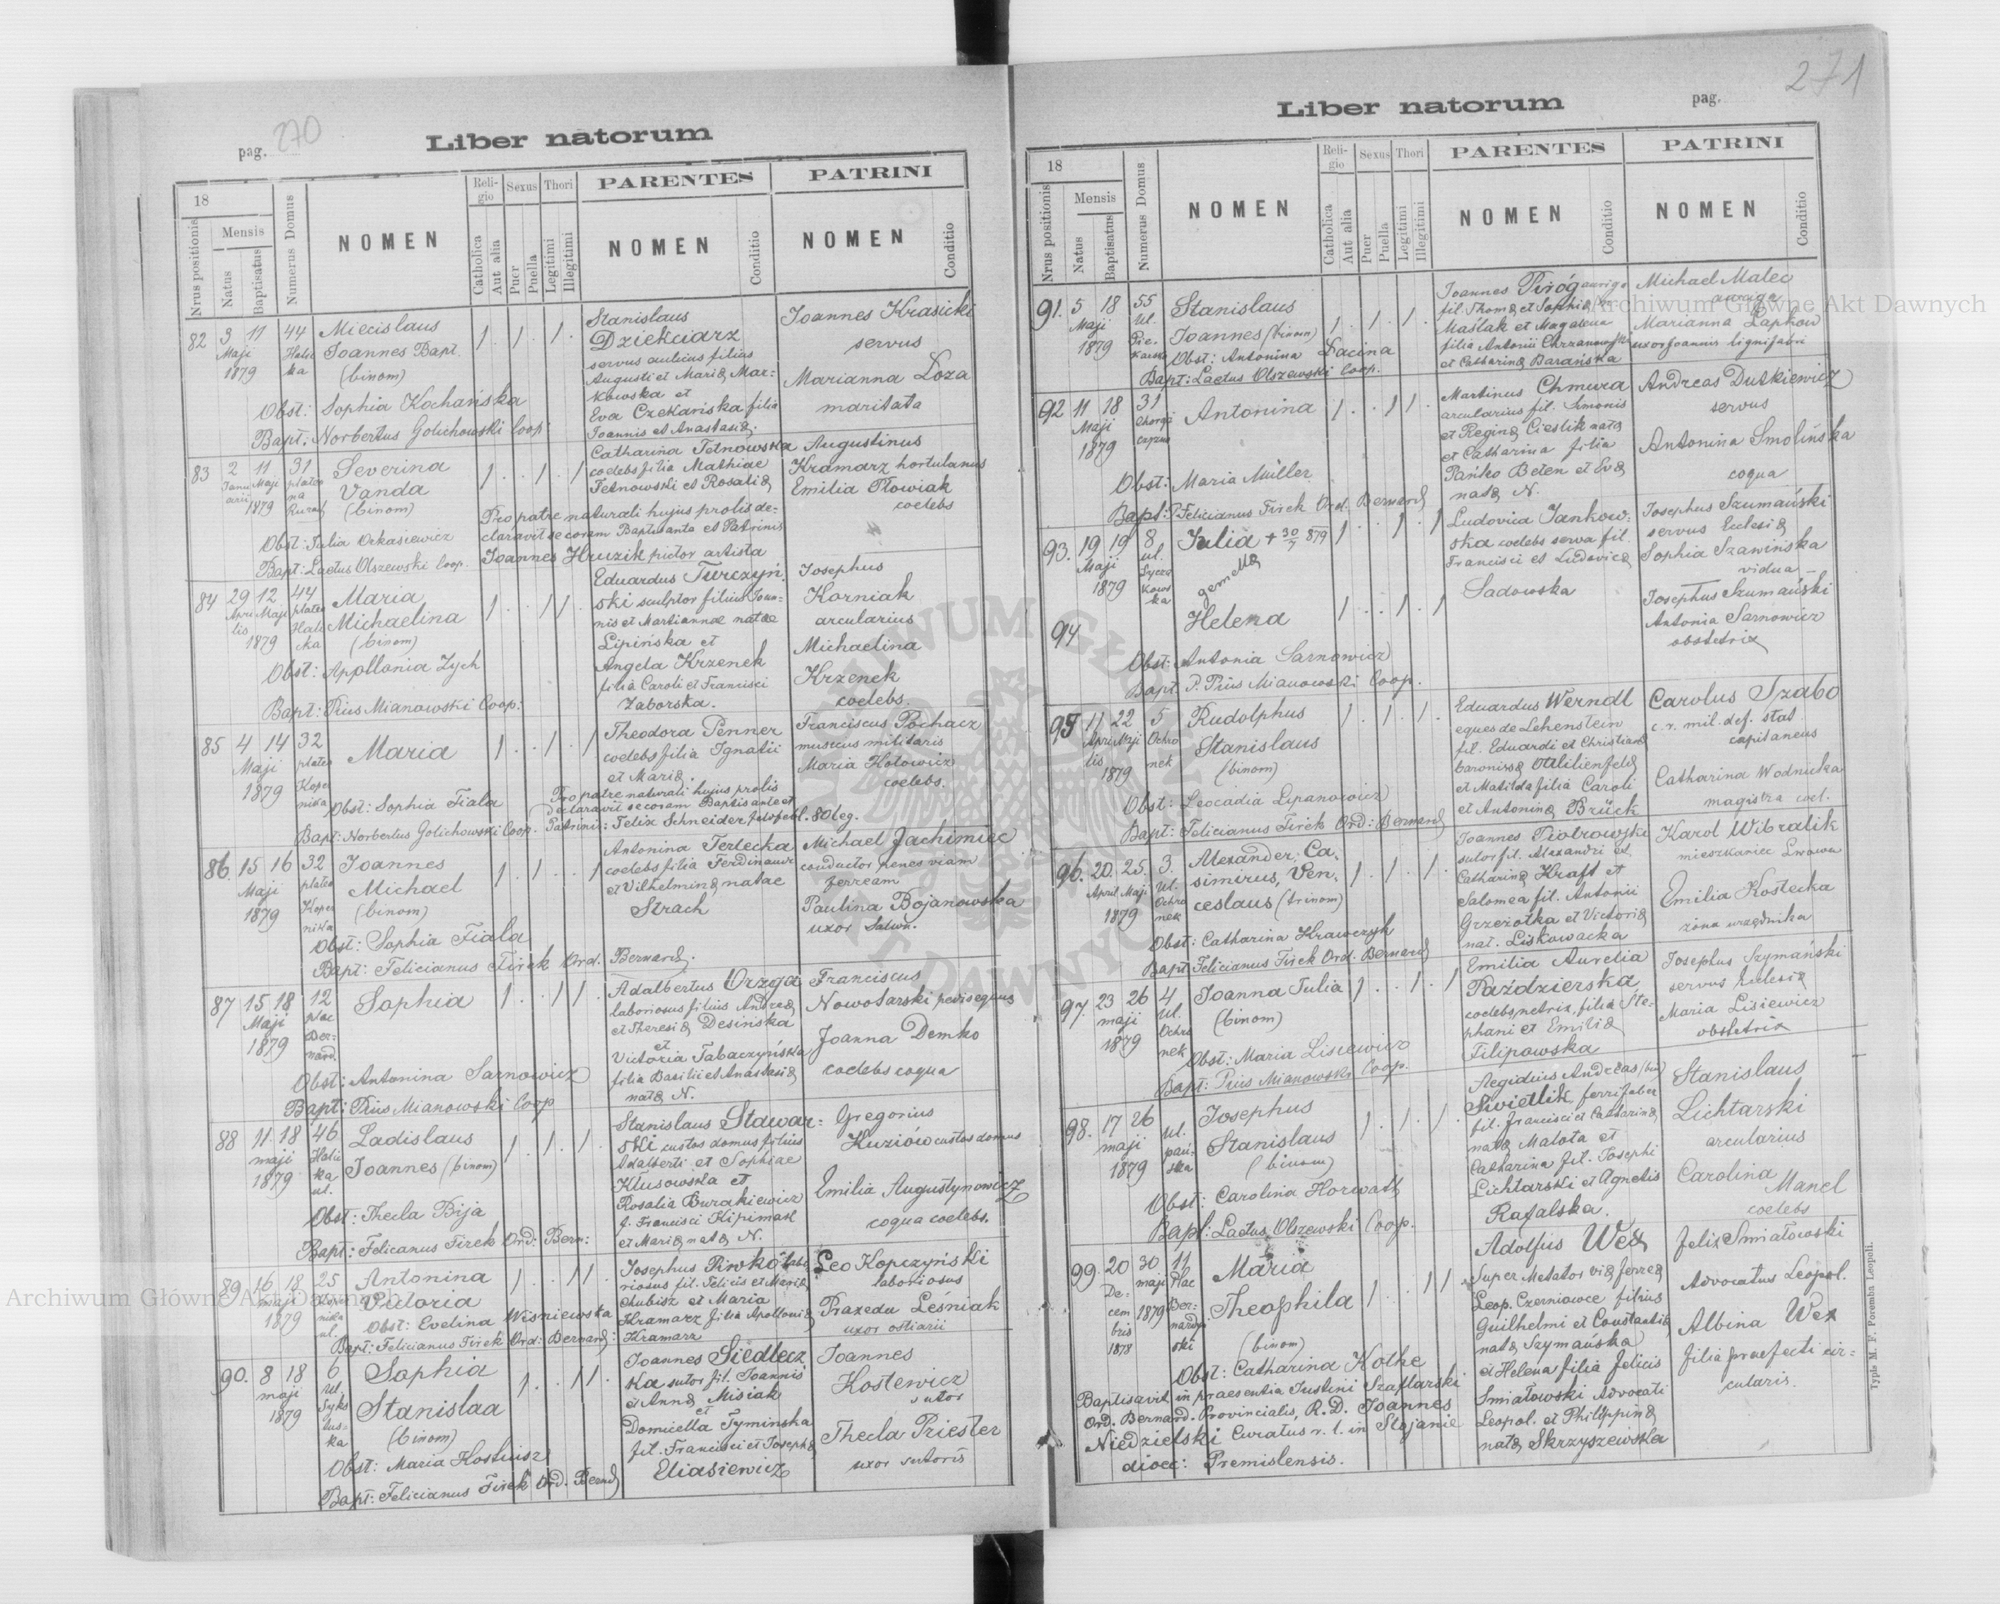 271
pag. 270
Liber natorum
18
Nrus positionis
Mensis
Natus
Baptisatus
Numerus Domus
NOMEN
Religio
Catholica
Aut alia
Sexus
Puer
Puella
Thori
Legitimi
Illegitimi
PARENTES
NOMEN
Conditio
PATRINI
NOMEN
Conditio
82 3 11 44 Miecislaus 1 . 1 . 1 . Stanislaus Joannes Krasicki
Maji Hali Joannes Bapt. Dziekciarz servus
1879 cka (binom) servus aulicus filius
Augusti et Mariæ Mar- Marianna Loza
kowska et maritata
Obst: Sophia Kochańska Eva Czekańska filia
Bapt: Norbertus Golichowski Coop: Joannis et Anastasiæ
83 2 11 31 Severina 1 . . 1 . 1 Catharina Tetnowska Augustinus
Janu Maji platea Vanda coelebs filia Mathiae Kramarz hortulanus
arii 1879 (binom) Tetnowski et Rosaliæ Emilia Płowiak
coelebs
Pro patre naturali hujus prolis de-
claravit se coram Baptisante et Patrinis
Obst: Julia Orkasiewicz
Bapt: Laetus Olszewski Coop. Joannes Hruzik pictor artista
84 29 12 44 Maria 1 . . 1 1 . Eduardus Turczyń- Josephus
Apri Maji platea Michaelina ski sculptor filius Joan- Korniak
lis 1879 Hali (binom) nis et Mariannae natae arcularius
cka Lipińska et Michaelina
Obst: Apollonia Zych Angela Krzenek Krzenek
filia Caroli et Francisci coelebs.
Bapt: Pius Mianowski Coop: Zaborska.
85 4 14 32 Maria 1 . . 1 . 1 Theodora Penner Franciscus Pochacz
Maji platea coelebs filia Ignatii musicus militaris
1879 Koper et Mariæ. Maria Hotowicz
nika coelebs.
Obst: Sophia Fiala Pro patre naturali hujus prolis
declaravit se coram Baptisante et
Bapt: Norbertus Golichowski Coop. Patrini: Felix Schneider 80 leg.
86. 15 16 32 Joannes 1 . 1 . . 1 Antonina Terlecka Michael Jachimiec
Maji platea Michael coelebs filia Ferdinandi conductor penes viam
1879 Koper (binom) et Vilhelminæ natae ferream
nika Strach Paulina Bojanowska
Obst: Sophia Fiala uxor
Bapt: Felicianus Firek Ord. Bernard.
87 15 18 12 Sophia 1 . . 1 1 . Adalbertus Orzga Franciscus
Maji plac laboriosus filius Andreæ Nowosarski pedisequus
1879 Ber- et Theresiæ Desińska
nard. et Joanna Demko
Victoria Tabaczyńska coelebs coqua
Obst: Antonina Sarnowicz filia Basilii et Anastasiæ
Bapt: Pius Mianowski Coop natæ N.
88 11 18 46 Ladislaus 1 . 1 . 1 . Stanislaus Stawar- Gregorius
maji Halic Joannes (binom) ski custos domus filius Kuziów custos domus
1879 ka Adalberti et Sophiae
ul. Klusowska et Emilia Augustynowicz
Obst: Thecla Bija Rosalia Burakiewicz coqua coelebs.
f. Francisci
Bapt: Felicanus Firek Ord: Bern: et Mariæ natæ N.
89 16 18 25 Antonina 1 . . 1 1 . Josephus Piwko labo- Leo Kopczyński
maji Koper Victoria riosus fil. Felicis et Mariæ laboriosus
1879 nika Chubisz et Maria Praxeda Leśniak
ul. Obst: Evelina Wiśniewska Kramarz filia Apolloniæ uxor ostiarii
Bapt: Felicianus Firek Ord: Bernard: Kramarz
90. 8 18 6 Sophia 1 . . 1 1 . Joannes Siedlecz Joannes
maji ul. Stanislaa ka sutor fil. Joannis Kostewicz
1879 Syks (binom) et Annæ Misiak sutor
tus- et
ka Domicella Tymińska Thecla Priester
Obst: Maria Kostiusz fil. Francisci et Josephæ uxor sutoris
Bapt: Felicianus Firek Ord. Bernd Eliasiewicz
Liber natorum
pag.
18
Nrus positionis
Mensis
Natus
Baptisatus
Numerus Domus
NOMEN
Religio
Catholica
Aut alia
Sexus
Puer
Puella
Thori
Legitimi
Illegitimi
PARENTES
NOMEN
Conditio
PATRINI
NOMEN
Conditio
91. 5 18 55 Stanislaus 1 . 1 . 1 . Joannes Piróg auriga Michael Malec
Maji ul. Joannes (binom) fil. Thomæ et Sophiæ auriga
1879 Pie- Maślak et Magdalena Marianna Łapków
karska Obst: Antonina Łacina filia Antonii uxor Joannis lignifabri
Bapt: Laetus Olszewski Coop. et Catharinæ Barańska
92 11 18 31 Antonina 1 . . 1 1 . Martinus Chmura Andreas Dutkiewicz
Maji Chorąż arcularius fil. Simonis servus
1879 czyzna et Reginæ Cieslik natæ
et Catharina filia Antonina Smolińska
Obst: Maria Müller Pańko Beten et Evæ coqua
natæ N.
Bapt: P. Felicianus Firek Ord. Bernard
93. 19 19 8 Julia + 30/7 879 1 . . 1 . 1 Ludovica Jankow- Josephus Szumański
Maji ul. gemellæ ska coelebs serva fil. servus Ecclesiæ
1879 Łycza Francisci et Ludovicæ Sophia Szawińska
kows Sadowska vidua
ka
94 Helena 1 . . 1 . 1 Josephus Szumański
Antonia Sarnowicz
Obst: Antonia Sarnowicz obstetrix
Bapt. P. Pius Mianowski Coop.
95 11 22 5 Rudolphus 1 . 1 . 1 . Eduardus Werndl Carolus Szabo
Apri Maji Ochro Stanislaus eques de Lehenstein c. r. mil. def. stat.
lis 1879 nek (binom) fil. Eduardi et Christianæ capitaneus
baronissæ a Lilienfeld
Obst: Leocadia Lipanowicz et Matilda filia Caroli Catharina Wodnicka
et Antoninæ Brück magistra coel.
Bapt: Felicianus Firek Ord: Bernard
96. 20. 25. 3 Alexander, Ca- 1 . 1 . 1 . Joannes Piotrowski Karol Wibralik
April Maji ul. simirus, Ven- sutor fil. Alexandri et mieszkaniec Lwowa
1879 Ochro ceslaus (trinom) Catharinæ Kraft et
nek Salomea fil. Antonii Emilia Kostecka
Obst: Catharina Krawczyk Grzezotka et Victoriæ żona urzędnika
Bapt Felicianus Firek Ord. Bernard nat. Liskowacka
97. 23 26 4 Joanna Julia 1 . . 1 . 1 Emilia Aurelia Josephus Szymański
maji ul. (binom) Paździerska servus Eclesiæ
1879 Ochro coelebs, netrix, filia Ste- Maria Lisiewicz
nek Obst: Maria Lisiewicz phani et Emiliæ obstetrix
Bapt: Pius Mianowski Coop. Filipowska
98. 17 26 ul. Josephus 1 . 1 . 1 . Aegidius Andreas (bin) Stanislaus
maji pań- Stanislaus Świetlik, ferrifaber Lichtarski
1879 ska (binom) fil. Francisci et Catharinæ arcularius
natæ Małota et
Obst: Carolina Horwath Catharina fil. Josephi Carolina
Lichtarski et Agnetis Manel
Bapt: Laetus Olszewski Coop. Rafalska. coelebs
99. 20 30. 11 Maria 1 . . 1 1 . Adolfus Wex Felix Śmiałowski
De- maji Plac Theophila Super Metator viæ ferreæ Advocatus Leopol.
cem 1879 Ber- (binom) Leop. Czerniowce filius
bris nardyn Guilhelmi et Constantiæ Albina Wex
1878 ski natæ Szymańska filia praefecti cir-
Obst: Catharina Kothe et Helena filia Felicis cularis.
Baptisavit in praesentia Justini Szaflarski Śmiałowski Advocati
Ord. Bernard. Provincialis, R. D. Joannes Leopol. et Philippinæ
Niedzielski Curatus r. l. in Stojanie natæ Skrzyszewska
dioec: Premislensis.
Typis M. F. Poremba Leopoli.
Archiwum Główne Akt Dawnych
Archiwum Główne Akt Dawnych
ARCHIWUM GŁÓWNE AKT DAWNYCH